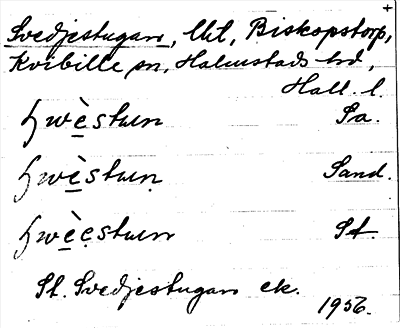 +
Svedjestugan, lht, Biskopstorp,
Kvibille sn, Halmstads hd,
Hall. l.
ɧwèstuın Sa.
ɧwèstuıṇ Sand.
ɧwèẹstuın St.
St. Svedjestugan ek.
1956.